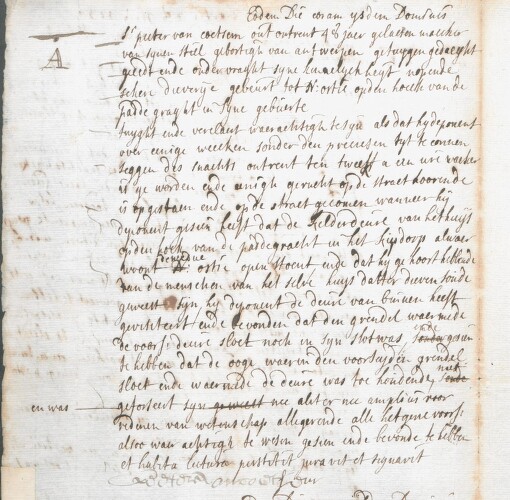 Eodem Die coram ijsdem Dominis
A
Sr peeter van coetsem out ontrent 48 jaer gelaesen maecker
van synen stiel gebortigh van antwerpen getuyge gedaeght
geedt ende ondervraght syne kennelyckheyt nopende
seker dieverije gebeurt tot Sr ortie op den hoeck van de
padde graght in syne gebuerte
tuyght ende verclaert waerachtigh te syn als dat hy deponent
over eenige weecken sonder den precisen tyt te connen
seggen des snachts ontrent ten twelf a een ure wacker
is geworden ende eenigh gerucht op de straet hoorende
is opgestaen ende op de straet gecomen wanneer hij
deponent gesien heeft dat de kelderdeure van het huys
op den hoeck van de paddegracht in het kipdorp alwaer
woont Sr ortie open stoent ende dat hy gehoort hebbende
van de menschen van het selve huys datter dieven souden
geweest syn hy deponent de deure van binnen heeft
gevisiteert ende bevonden dat den grendel waermede
de voors: deure sloet noch in syn slot was, ende gesien
te hebben dat de ooge waer in den voorseyden grendel
sloet ende waermede de deure was toe houdende niet
en was
geforseert syn geweest nec aliter nec amplius voor
redenen van wetenschap allegerende alle het gene voors:
alsoo waerachtigh te wesen gesien ende bevonde te hebben
et habita lectura perstitit juravit et signavit